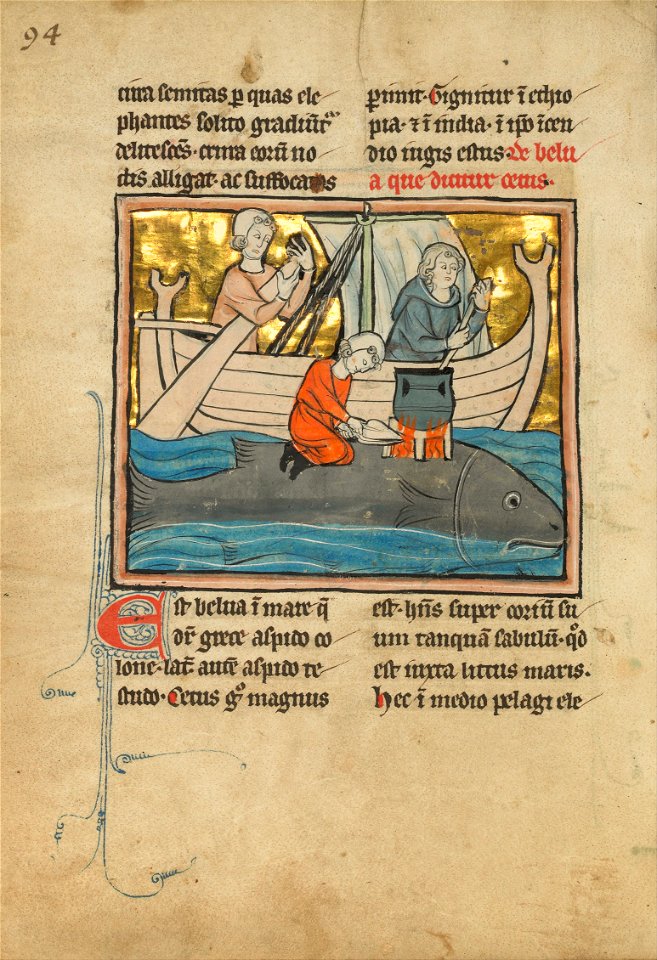 94
cira semitas p quas ele
phantes solito gradiunt
delitesces. crura eorum no
dis alligat. ac suffocatos
perimit. Gignitur i ethio
pia. ⁊ i india. i ipso icen
dio iugis estus. De belu
a que dicitur cetus.
Est belua i mare q
dr grece aspido co
lone. lat. aute aspido te
studo. Cetus g magnus
est. hns super corium su
um tanquam sabulum. qd
est iuxta littus maris.
hec i medio pelagi ele